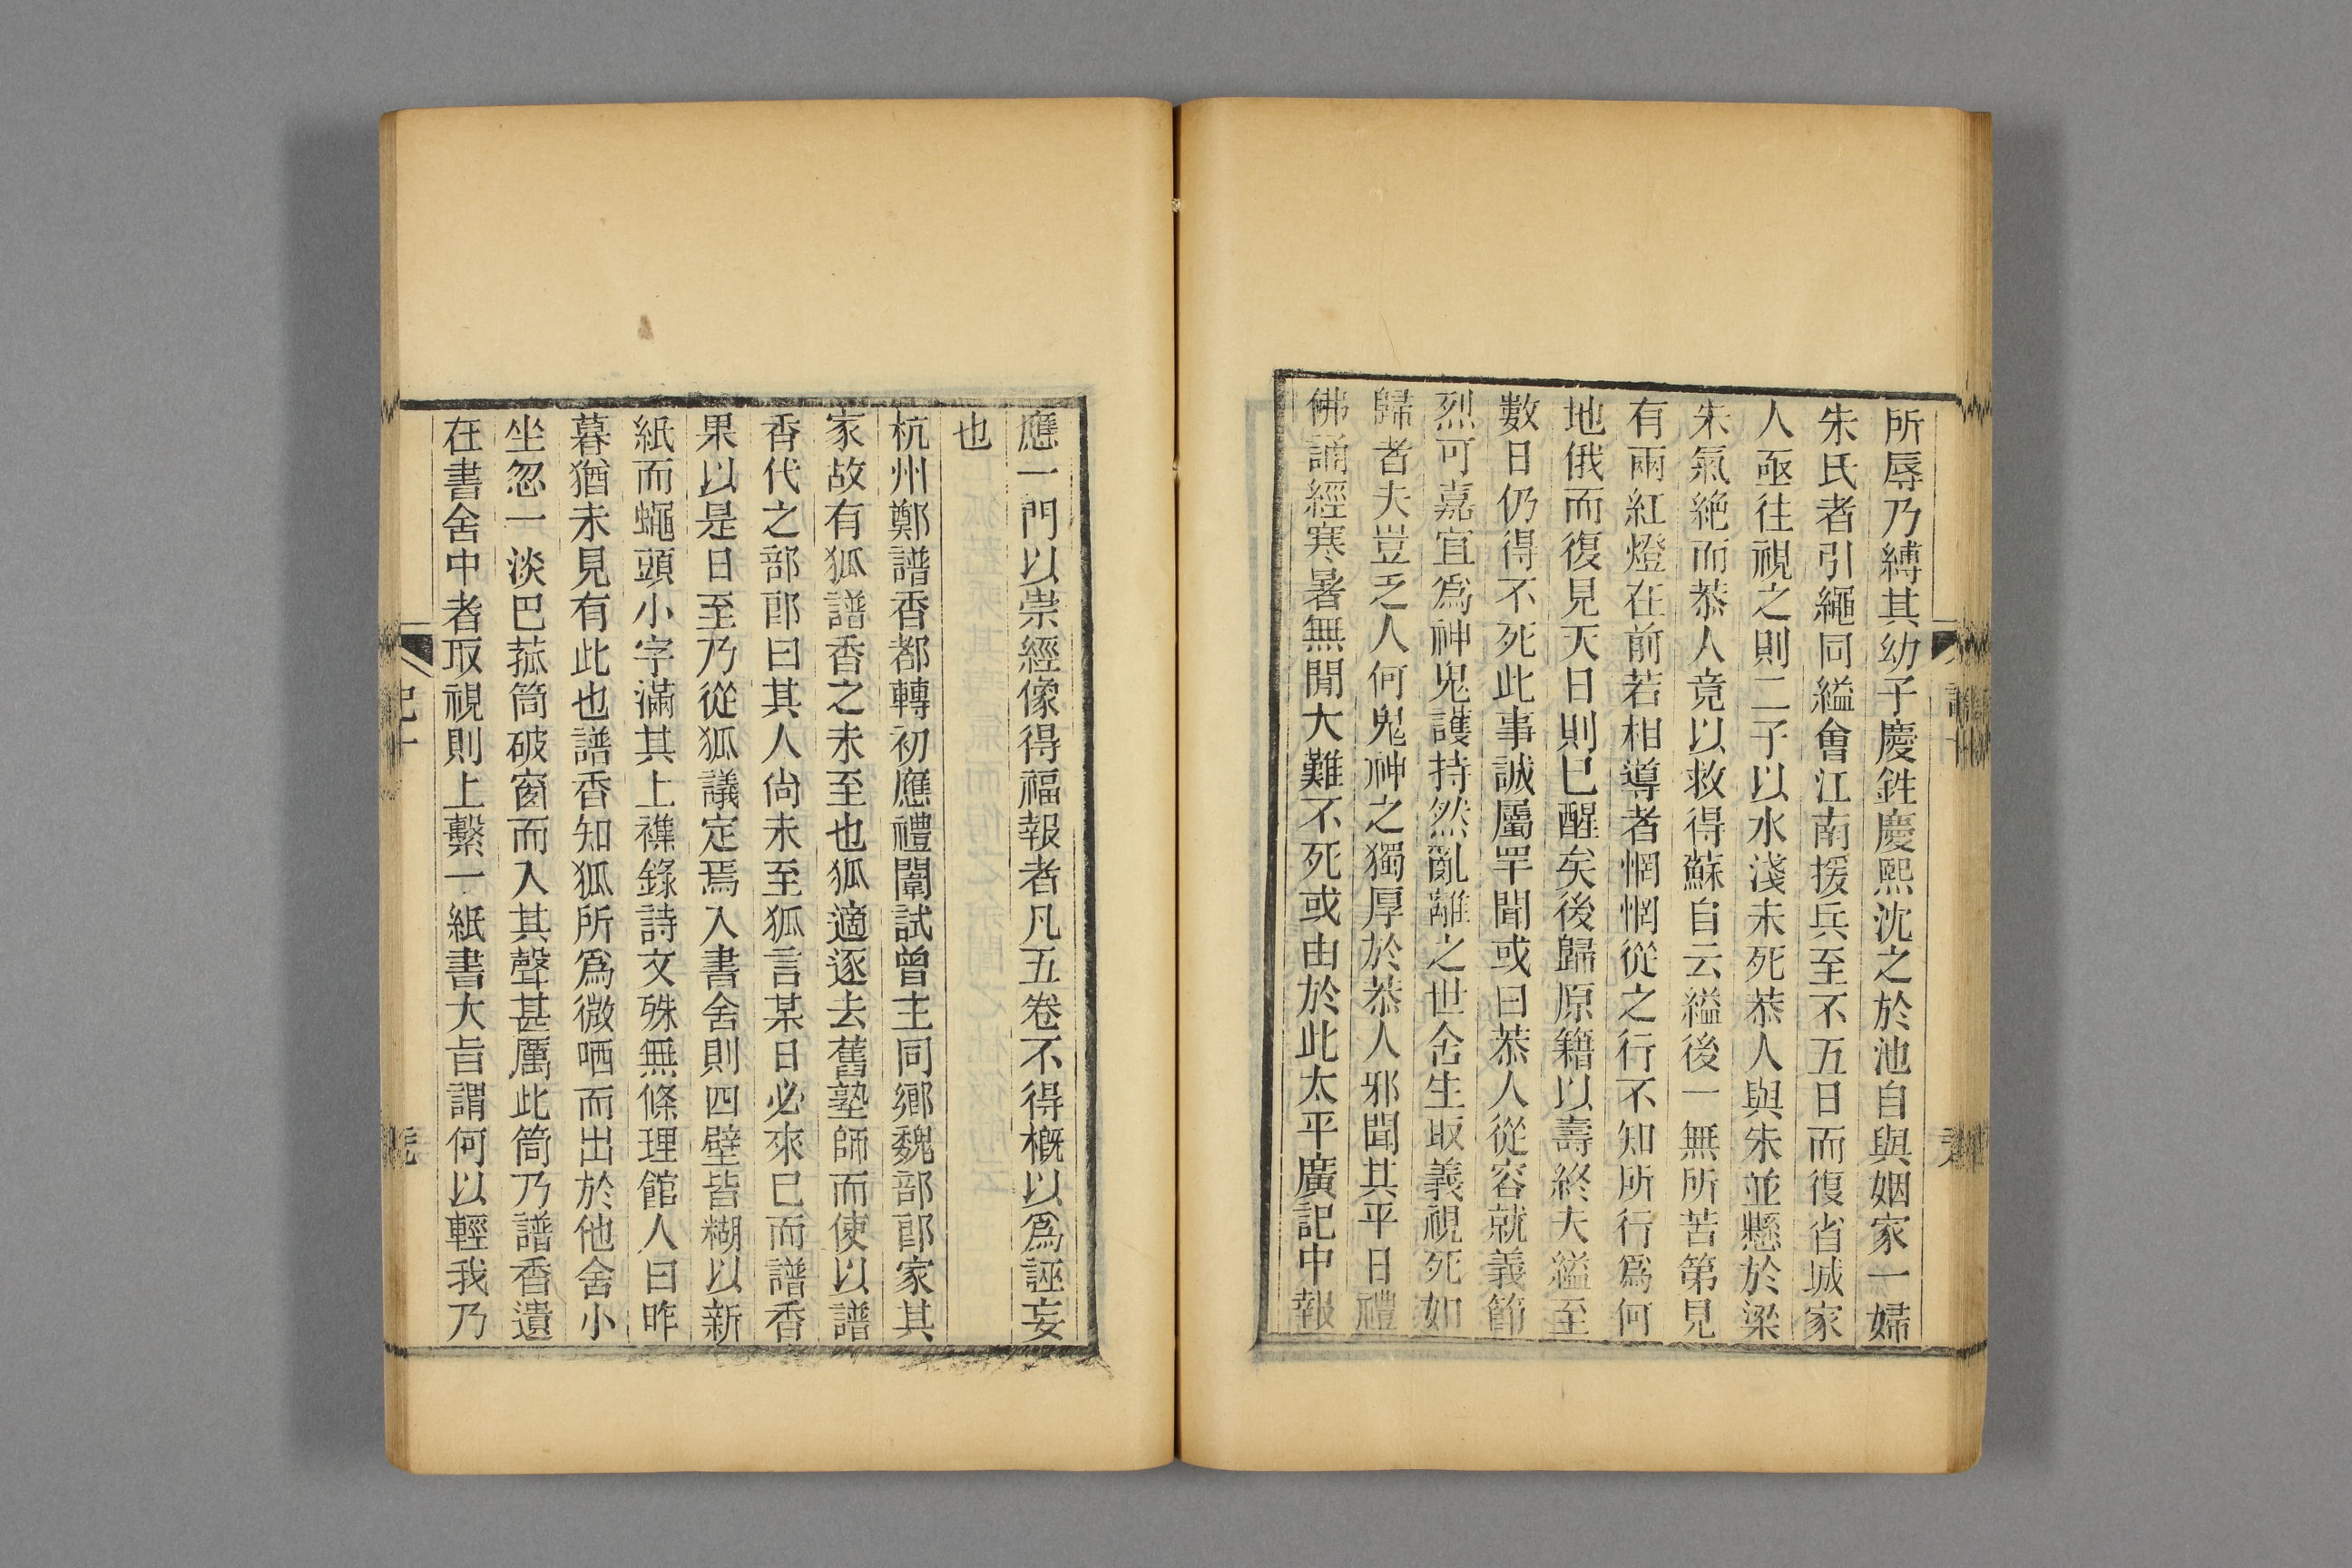 所辱乃縛其幼子慶鉎慶熙沈之於池自與姻家一婦
朱氏者引繩同縊會江南援兵至不五日而復省城家
人亟往視之則二子以水淺未死恭人與朱並懸於梁
朱氣絶而恭人竟以救得蘇自云縊後一無所苦第見
有兩紅燈在前若相導者惘惘從之行不知所行爲何
地俄而復見天日則已醒矣後歸原籍以壽終夫縊至
數日仍得不死此事誠屬罕聞或曰恭人從容就義節
烈可嘉宜爲神鬼護持然亂離之世舍生取義視死如
歸者夫豈乏人何鬼神之獨厚於恭人邪聞其平日禮
佛誦經寒暑無閒大難不死或由於此太平廣記中報
應一門以崇經像得福報者凡五卷不得概以爲誣妄
也
杭州鄭譜香都轉初應禮闈試曾主同鄉魏部郎家其
家故有狐譜香之未至也狐適逐去舊塾師而使以譜
香代之部郎曰其人尙未至狐言某日必來巳而譜香
果以是日至乃從狐議定焉入書舍則四壁皆糊以新
紙而蠅頭小字滿其上襍錄詩文殊無條理館人曰昨
暮猶未見有此也譜香知狐所爲微哂而出於他舍小
坐忽一淡巴菰筒破窗而入其聲甚厲此筒乃譜香遺
在書舍中者取視則上繫一紙書大旨謂何以輕我乃